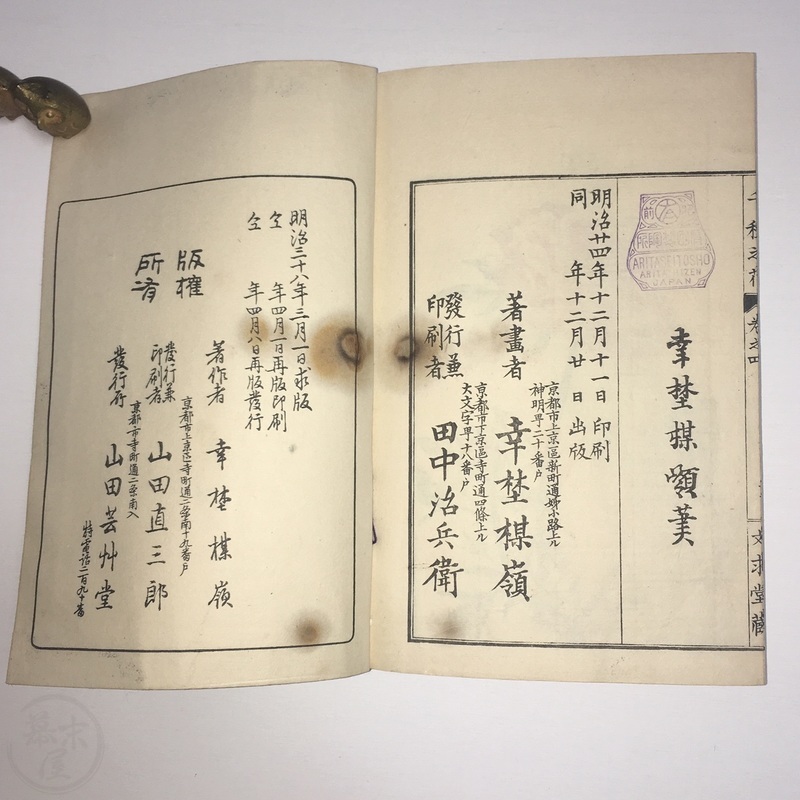 千種之花
卷之四
文求堂藏
幸埜楳嶺筆
ARITASEITOSHO
ARITA HIZEN
JAPAN
明治廿四年十二月十一日印刷
同　年十二月廿日出版
京都市上京區新町通姉小路上ル
神明町二十番戶
著畫者　幸埜楳嶺
京都市下京區寺町通四條上ル
大文字町十八番戶
發行兼印刷者　田中治兵衛
明治三十八年三月一日求版
仝　年四月一日再版印刷
仝　年四月八日再版發行
版權所有
著作者　幸埜楳嶺
京都市上京區寺町通二条南十九番戶
發行兼印刷者　山田直三郎
京都市寺町通二条南入
發行所　山田芸艸堂
特電話二百九十番
幕末屋